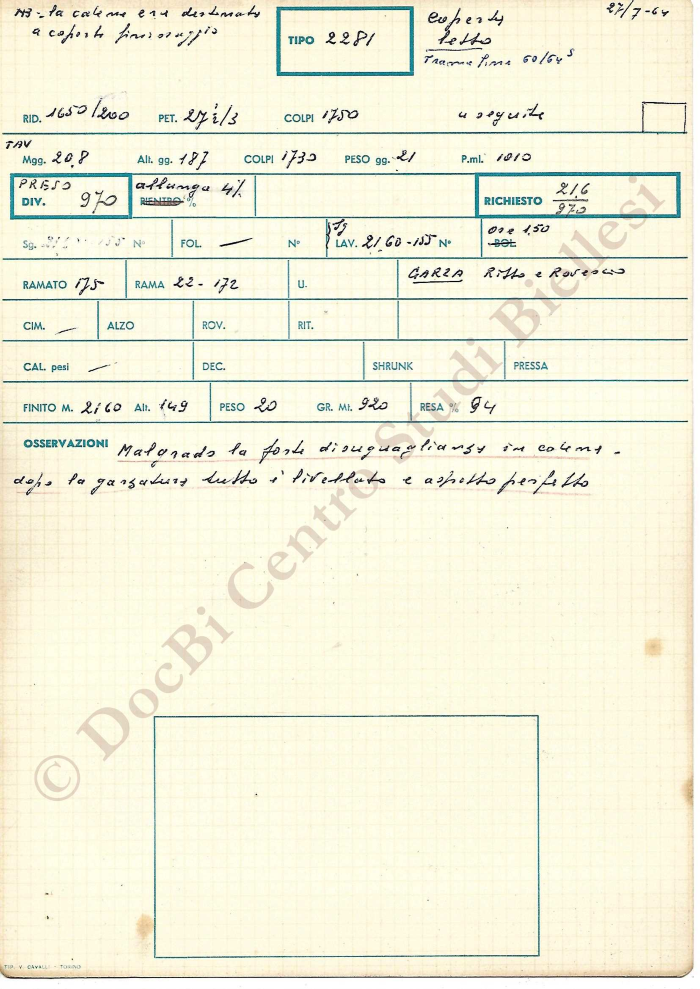 NB - la catena era destinata
a coperte
27/7-64
TIPO 2281
Coperta
letto
Trama fine 60/64 s
RID. 1650/200 PET. 27 /3 COLPI 1750 a seguito
TAV
Mgg. 20,8 Alt. gg. 187 COLPI 1730 PESO gg. 21 P.ml. 1010
PRESO
DIV. 970
allunga 4%
RIENTRO %
RICHIESTO 216
970
Sg. 155 N° FOL. — N° Sg LAV. 21,60 - 155 N° ore 1,50
BOL
RAMATO 175 RAMA 22 - 172 U. GARZA Ritto e Rovescio
CIM. — ALZO ROV. RIT.
CAL. pesi — DEC. SHRUNK PRESSA
FINITO M. 2160 Alt. 149 PESO 20 GR. Mt. 920 RESA % 94
OSSERVAZIONI Malgrado la forte disuguaglianza in catena -
dopo la garzatura tutto è livellato e aspetto perfetto
© DocBi Centro Studi Biellesi
TIP. V. CAVALLI - TORINO